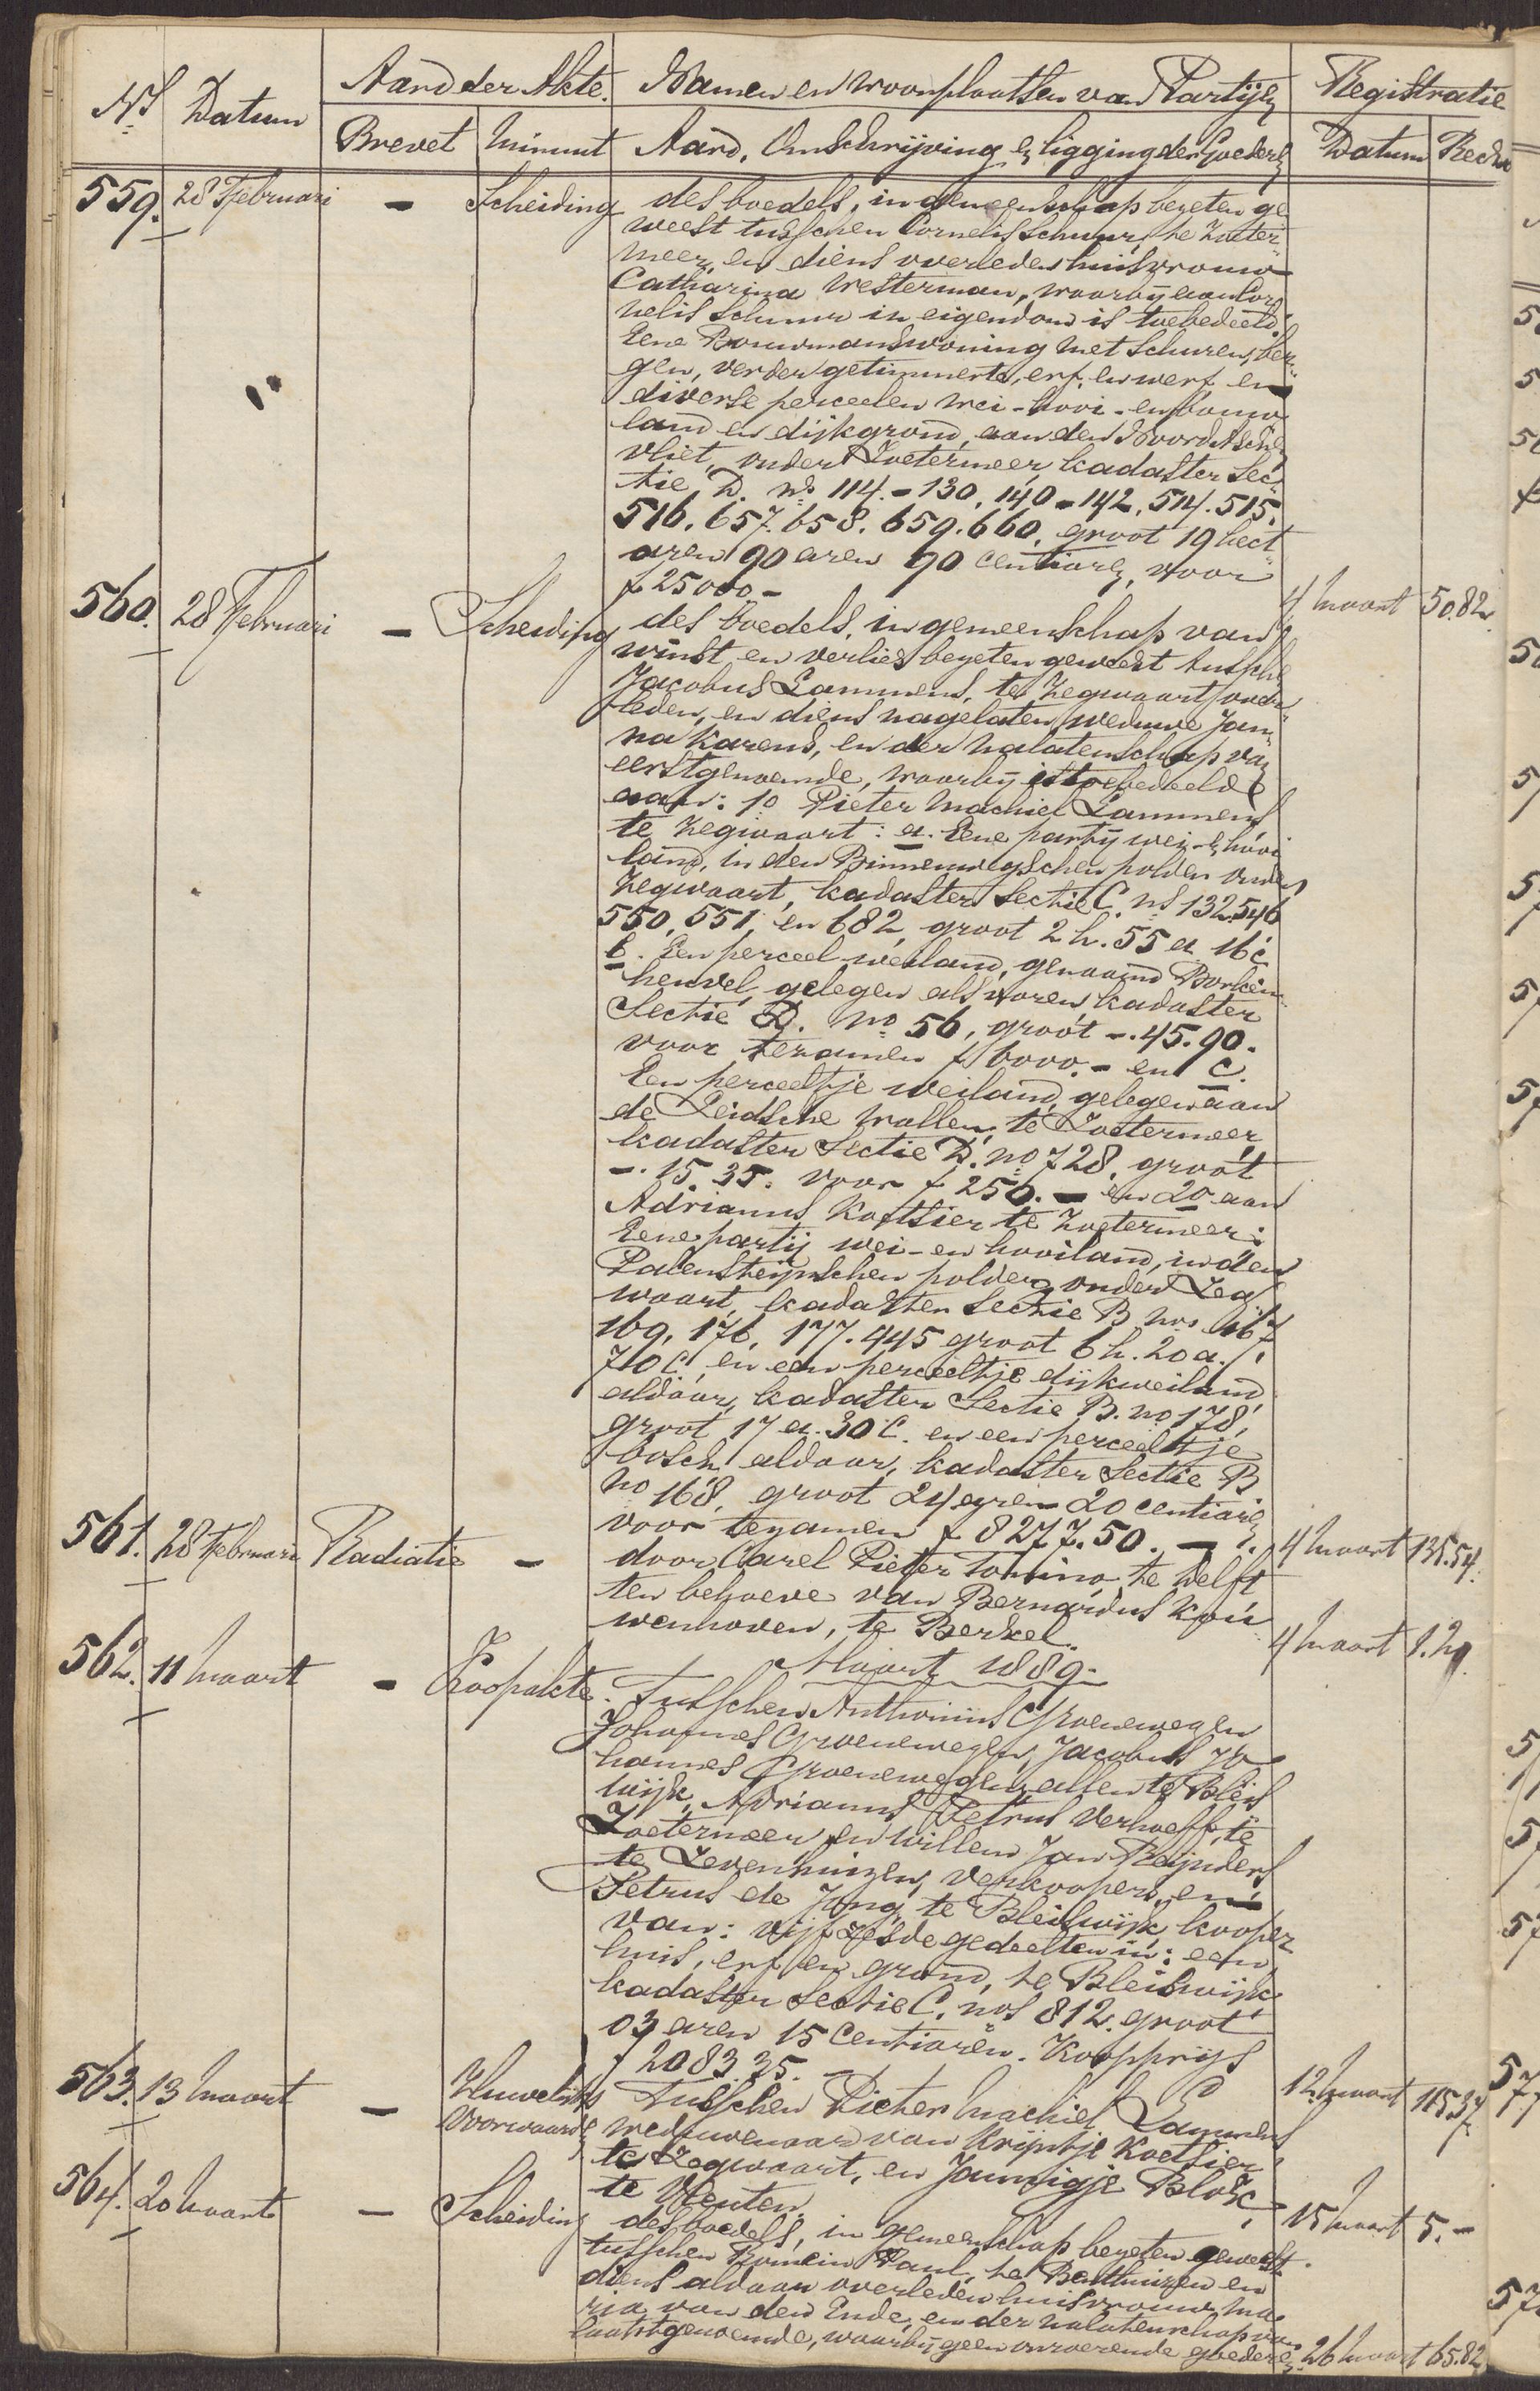 Nos Datum Aard der Akte. Namen en woonplaatsen van Partijen Registratie
Brevet Minuut Aard, Omschrijving en ligging der Goederen Datum Recht
559. 28 Februari - Scheiding des boedels, in gemeenschap bezeten ge-
weest tusschen Cornelis Schuur, te Zoeter-
meer, en diens overleden huisvrouw
Catharina Westerman, waarbij aan Cor-
nelis Schuur in eigendom is toebedeeld:
Eene Bouwmanswoning met schuren, ber-
gen, verder getimmerte, erf en werf en
diverse perceelen wei- hooi- en bouw-
land en dijkgrond, aan den Noord Aschen
vliet, onder Zoetermeer, kadaster Sec-
tie D. nos 114.-130, 140-142. 514. 515.
516. 657. 658. 659. 660. groot 19 hect-
aren 90 aren 90 centiaren, voor
f 25000.- 4 Maart 50.82.
560. 28 Februari - Scheiding des boedels, in gemeenschap van
winst en verlies bezeten geweest tusschen
Jacobus Lammens, te Zegwaart over-
leden, en diens nagelaten weduwe Jan-
na Karens, en der nalatenschap van
eerstgenoemde, waarbij is toebedeeld
aan: 1o Pieter Machiel Lammens
te Zegwaart: a. Eene partij wei- en hooi-
land, in den Binnenwegschen polder onder
Zegwaart, kadaster Sectie C. nos 132. 546
550, 551, en 682, groot 2 h. 55 a 16 c
b. Een perceel weiland, genaamd Borken-
heuvel, gelegen als voren, kadaster
Sectie D. no 56, groot -. 45. 90.
voor tezamen f 6000.- en c.
Een perceeltje weiland, gelegen aan
de Leidsche wallen, te Zoetermeer,
kadaster Sectie D. no 728, groot
-. 15. 35. voor f 250.- en 2o aan
Adrianus Koetsier te Zoetermeer:
Eene partij wei- en hooiland, in den
Palensteinschen polder, onder Zeg-
waart, kadaster Sectie B nos 167
169, 176, 177. 445 groot 6 h. 20 a.
710 c, en een perceeltje dijkweiland,
aldaar, kadaster Sectie B. no 178,
groot 17 a. 30 c. en een perceeltje
bosch aldaar, kadaster Sectie B
no 168, groot 24 aren 20 centiaren
voor tezamen f 8277.50.- 4 Maart 135.54.
561. 28 Februari Radiatie - door Carel Pieter Tomino, te Delft
ten behoeve van Bernardus Kou-
wenhoven, te Berkel. 4 Maart 1.20.
Maart 1889.
562. 11 Maart - Koopakte. Tusschen Anthonius Groenewegen
Johannes Groenewegen, Jacobus Jo-
hannes Groenewegen, allen te Bleis-
wijk, Adrianus Petrus Verhoeff, te
Zoetermeer en Willem Jan Reijnders
te Zevenhuizen, verkoopers, en
Petrus de Jong, te Bleiswijk, kooper
van: vijf zesde gedeelten in: een
huis, erf en grond, te Bleiswijk
kadaster Sectie C. nos 812. groot
03 aren 15 centiaren. Koopprijs
f 2083.35.- 12 Maart 115.37.
563. 13 Maart - Huwelijks Tusschen Pieter Machiel Lammens
Voorwaarden weduwenaar van Krijntje Koetsier
te Zegwaart, en Jannigje Blok,
te Vleuten. 15 Maart 5.-
564. 20 Maart - Scheiding des boedels, in gemeenschap bezeten geweest
tusschen Romein Paul, te Benthuizen en
diens aldaar overleden huisvrouw Ma-
ria van den Ende, en der nalatenschap van
laatstgenoemde, waarbij geen onroerende goederen 26 Maart 65.82